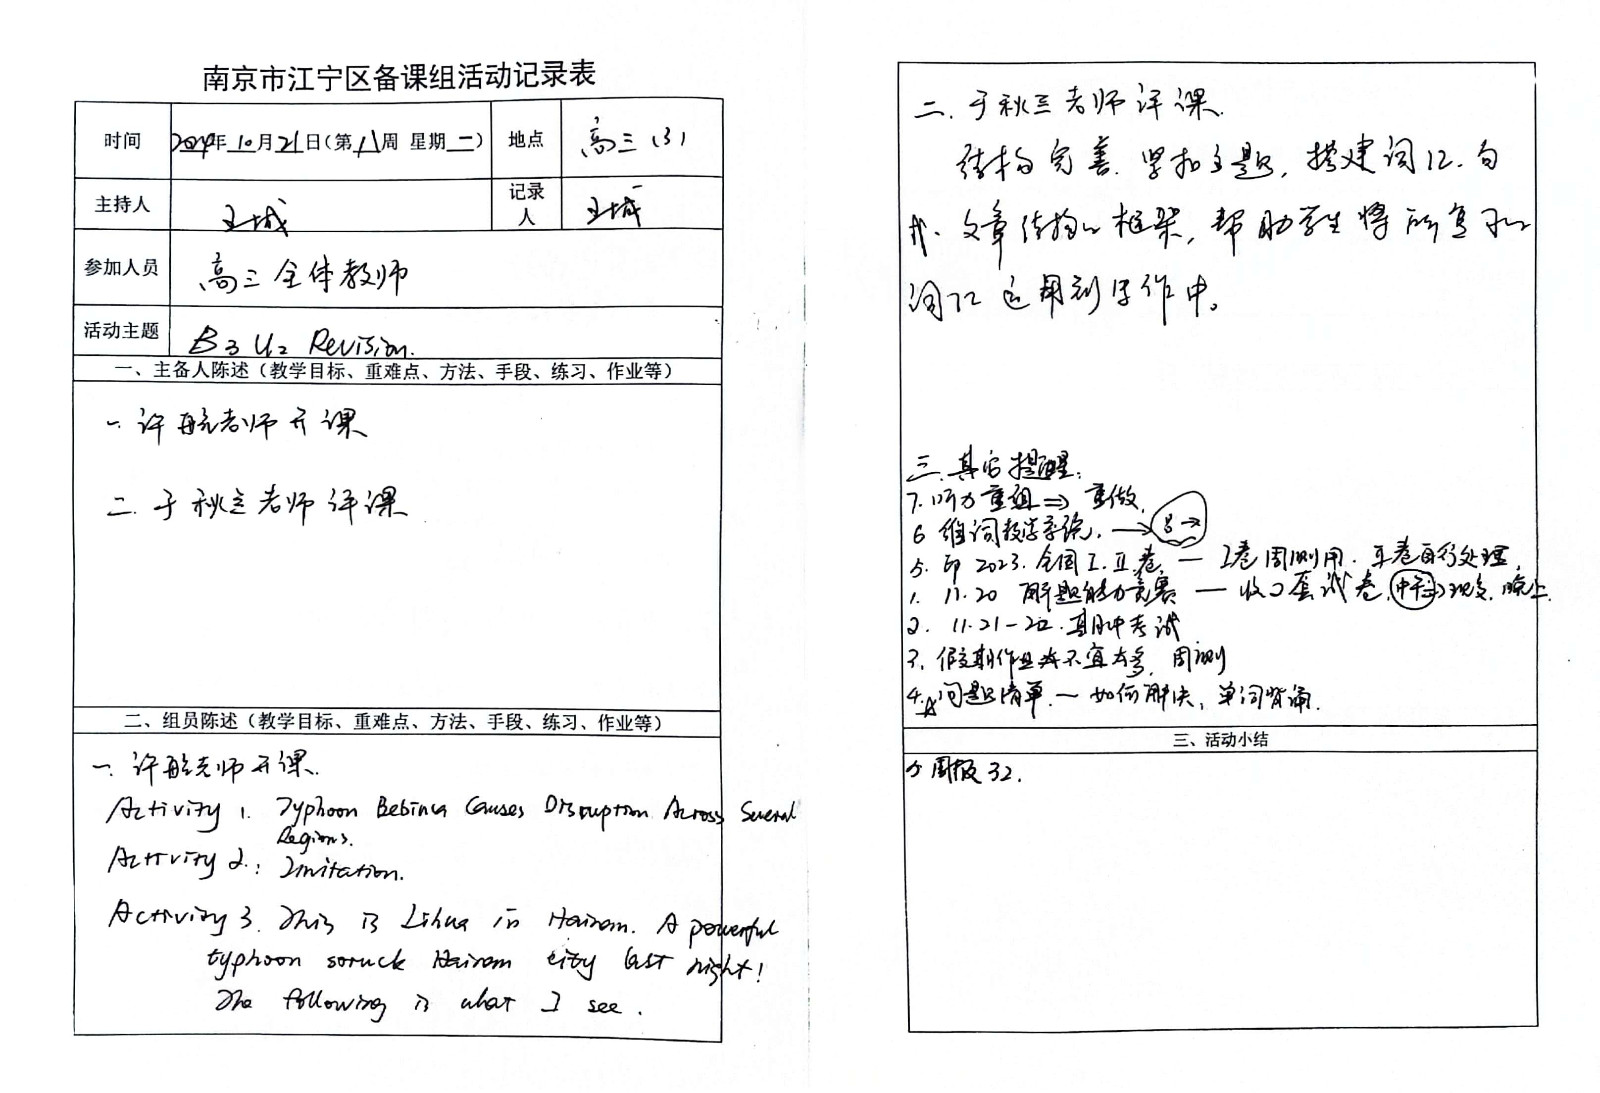 南京市江宁区备课组活动记录表
时间 2024年10月21日(第八周 星期一) 地点 高三(3)
主持人 王城 记录人 王城
参加人员 高三全体教师
活动主题 B3 U2 Revision.
一、主备人陈述（教学目标、重难点、方法、手段、练习、作业等）
一. 许航老师开课
二. 于秋兰老师评课
二、组员陈述（教学目标、重难点、方法、手段、练习、作业等）
一. 许航老师开课.
Activity 1. Typhoon Bebinca Causes Disruption Across Several
Regions.
Activity 2.: Imitation.
Activity 3. This is Lihua in Hainan. A powerful
typhoon struck Hainan city last night!
The following is what I see.
二. 于秋兰老师评课.
结构完善. 紧扣主题, 搭建词汇. 句
式. 文章结构的框架, 帮助学生将所复习的
词汇运用到写作中。
三. 其它提醒:
7. 听力重组 ⇒ 重做.
6 维词教学系统. →
5. 印2023.全国I.II卷. — I卷周测用. II卷自行处理.
1. 11.20 解题能力竞赛 — 收2套试卷. 中午 晚上.
2. 11.21-22. 期中考试
3. 假期作业不宜太多, 周测
4. ☆问题清单. — 如何解决, 单词背诵.
三、活动小结
周报32.